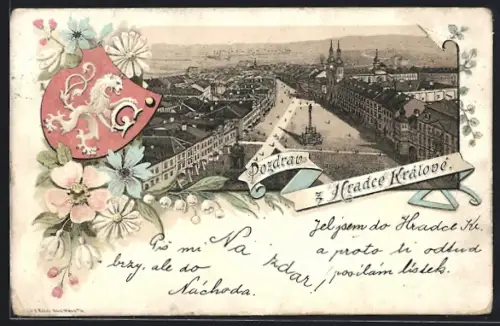 Pozdrav
z Hradce Králové.
Piš mi
brzy, ale do
Náchoda.
Na
zdar!
Jel jsem do Hradce Kr.
a proto ti odtud
posílám lístek.